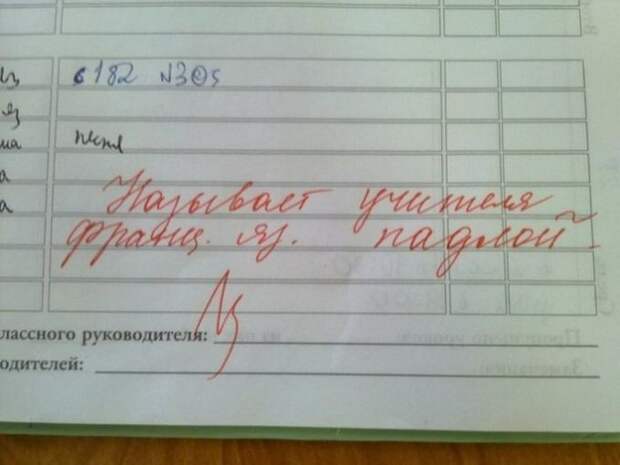 с 182 N3
яз
песня
Называет учителя
франц. яз. падлой
лассного руководителя:
одителей: